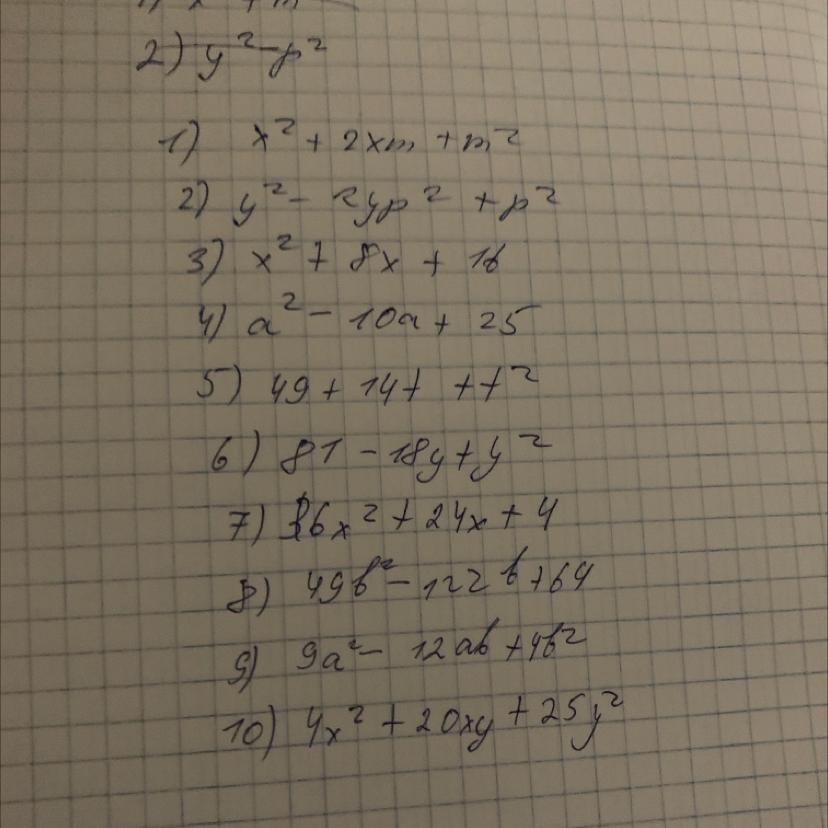 2) y² - p²
1) x² + 2xm + m²
2) y² - 2yp² + p²
3) x² + 8x + 16
4) a² - 10a + 25
5) 49 + 14t + t²
6) 81 - 18y + y²
7) 36x² + 24x + 4
8) 49b² - 122b + 64
9) 9a² - 12ab + 4b²
10) 4x² + 20xy + 25y²